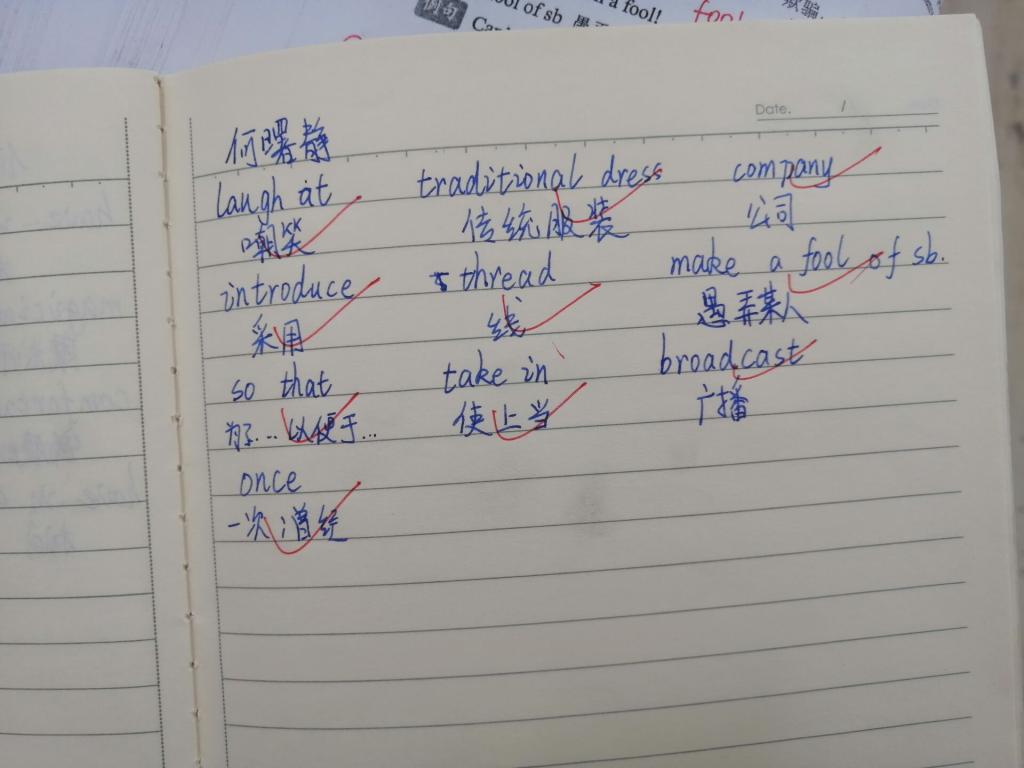 例句
ool of sb
n a fool!
fool
欺骗
Date. /
何曙静
laugh at traditional dress company
嘲笑 传统服装 公司
introduce thread make a fool of sb.
采用 线 愚弄某人
so that take in broadcast
为了...以便于... 使上当 广播
once
一次 曾经